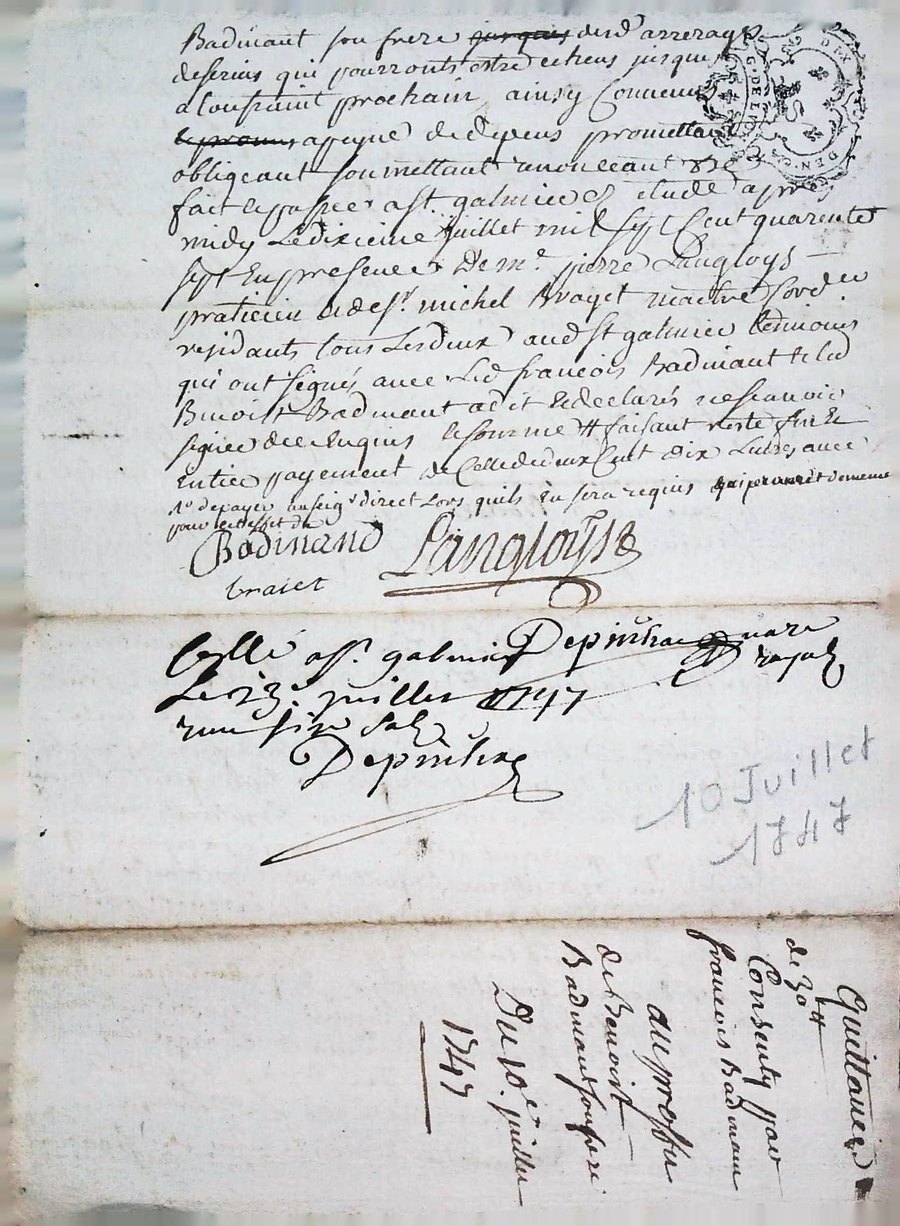 Badinant son frere jusques desd. arrerages
deserins qui pourronts estre echeus jusques
a prochain ainsy Convenu
apeyne de depens promettant
obligeant soumettant renonceant &c
fait et passée a st galmier étude apres
midy Le dixieme juillet mil sept Cent quarente
sept En presence De me. pierre Langloys
praticien et de sr. michel Brayet maitre Cord.er
residants tous Lesdeux aud st galmier temoins
qui ont signés avec Led francois Badinant & led
Benoist Badinant a dit et declarés ne scavoir
signer de ce Enquis la somme # faisant reste fin Et
Entier payement de Celle de deux Cent dix Livres avec
depayer auseigr direct Lors quils En sera requis
pour
Badinand Langloys
braiet
Depinhac nore
royal
Cellé a st. galmier
Le 23e. juillet 1747
six sols
Depinhac
10 Juillet
1747
Quittance
de 30 #
Consenty par
francois Badinant
au proffit
de Benoist
Badinant son frere
Du 10e. juillet
1747
DIX
DEN.
G. DE LYON